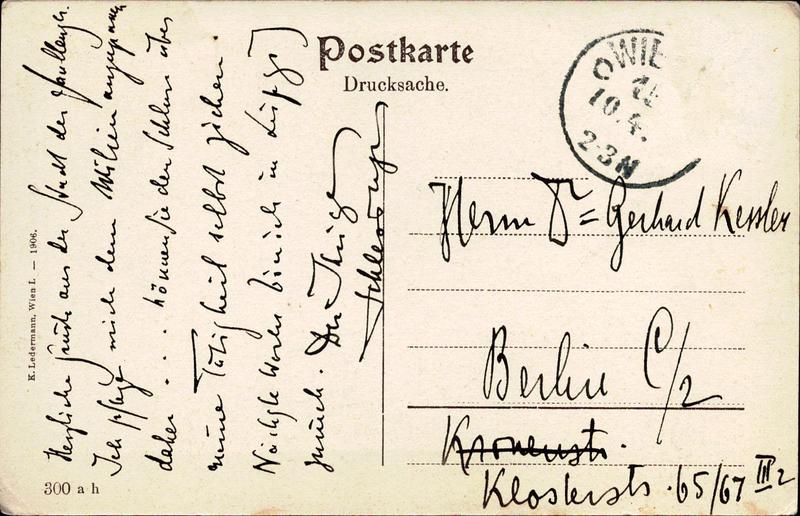 Postkarte
Drucksache.
WIE
10.4.
2-3N
Herzliche Grüße aus der Stadt der
Ich pflege mich dem Milieu anzupassen
daher . . . können Sie den Schluss über
meine Tätigkeit selbst ziehen
Nächste Woche bin ich in Leipzig
zurück. Der Ihrige
Herrn Dr = Gerhard Kessler
Berlin C/2
Kronenstr.
Klosterstr. 65/67 III 2
K. Ledermann, Wien I. — 1906.
300 a h